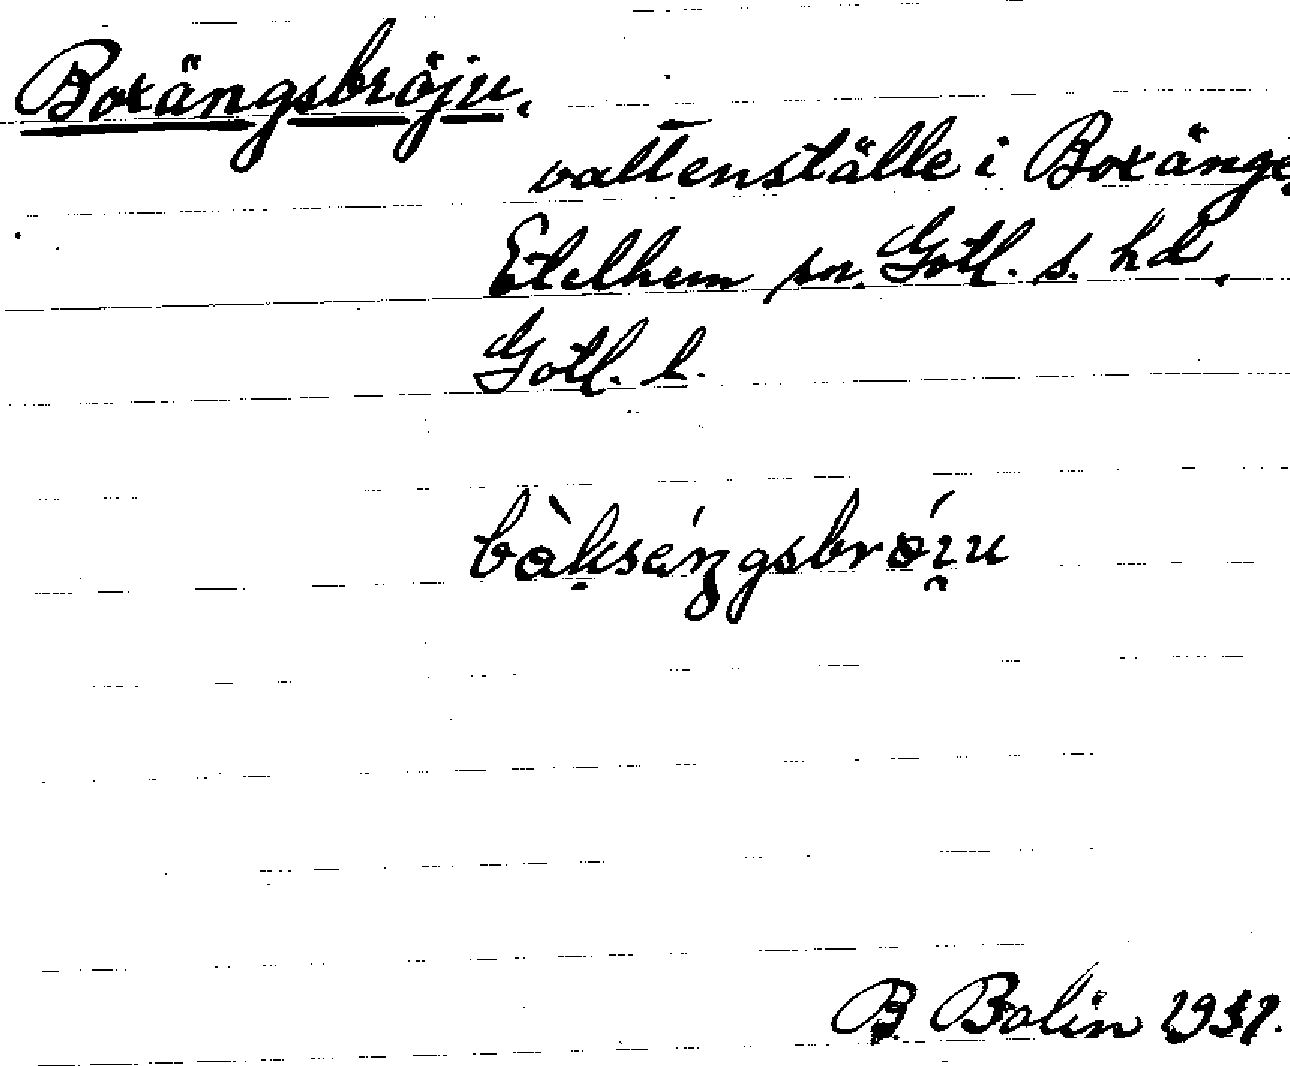 Boxängsbröju.
vattenställe i Boxänge,
Etelhem sn. Gotl. s. hd,
Gotl. l.
bàkséŋgsbrǿi̯u
B. Bolin 1937.